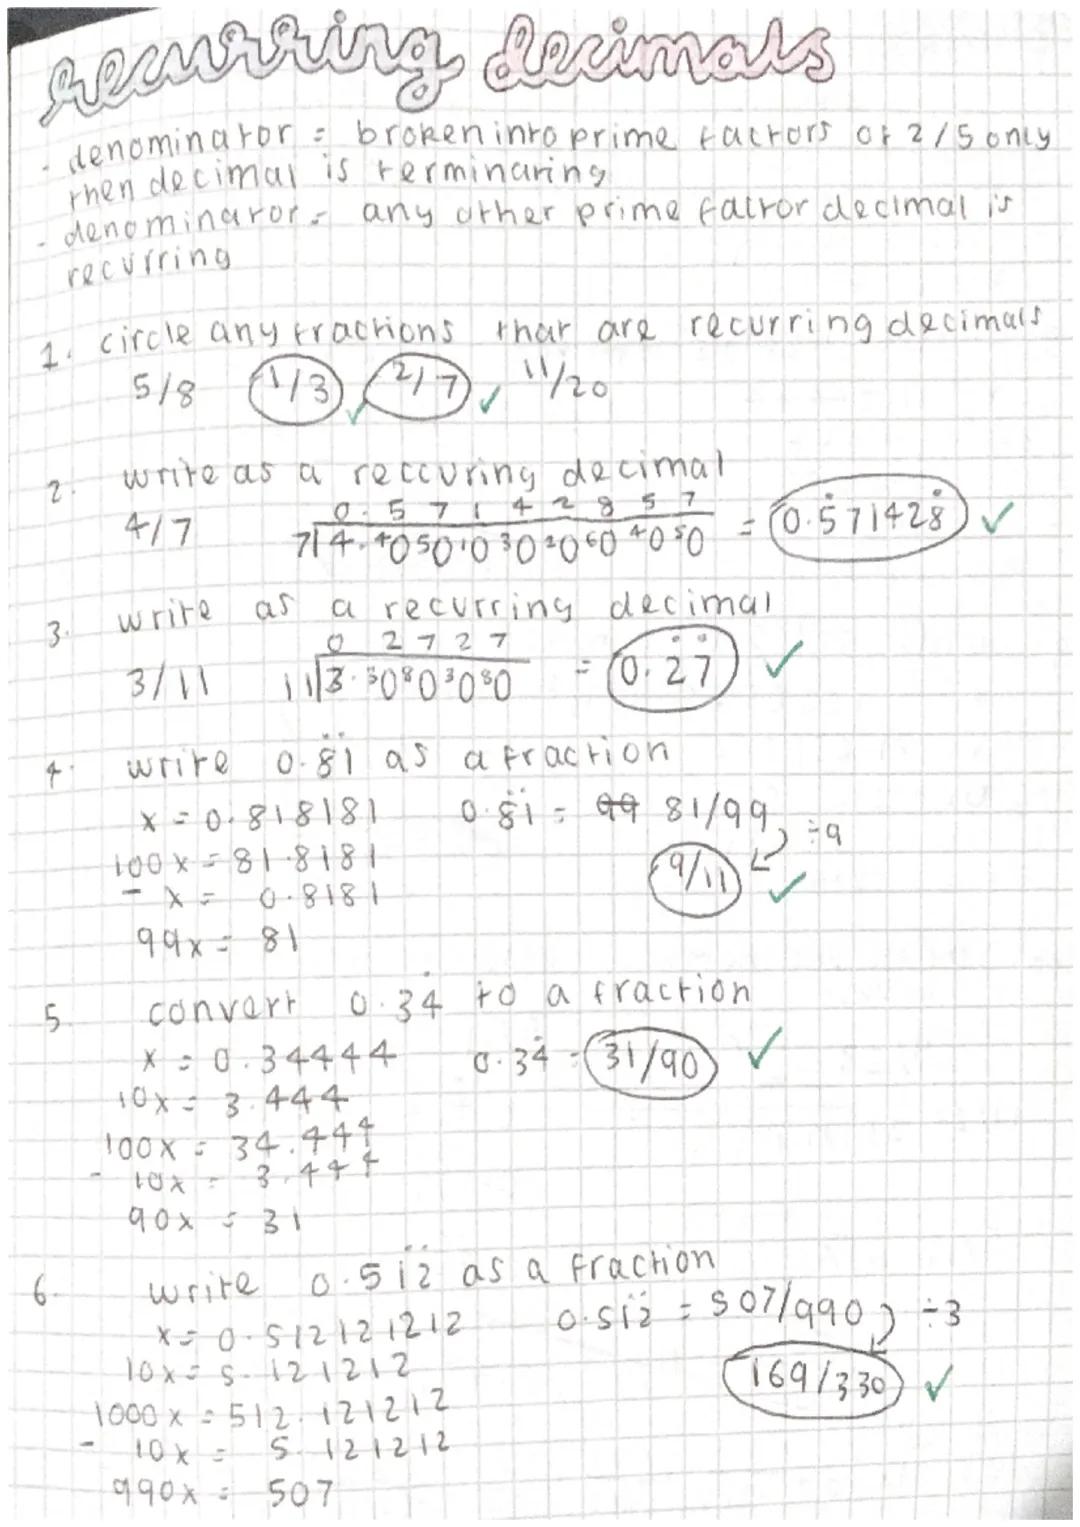 recurring decimals
- denominator = broken into prime factors of 2/5 only
then decimal is terminating
- denominator = any other prime factor decimal is
recurring
1. circle any fractions that are recurring decimals
5/8 1/3 ✓ 2/7 ✓ 11/20
2. write as a reccuring decimal
0.57142857
4/7 7|4.⁴0⁵0¹0³0²0⁶0⁴0⁵0 = 0.5̇71428̇ ✓
3. write as a recurring decimal
0 2727
3/11 11|3.³0⁸0³0⁸0 = 0.2̇7̇ ✓
4. write 0.8̇1̇ as a fraction
x = 0.818181 0.8̇1̇ = 99 81/99 ÷9
100x = 81.8181 9/11 ✓
- x = 0.8181
99x = 81
5. convert 0.34̇ to a fraction
x = 0.34444 0.34̇ = 31/90 ✓
10x = 3.444
100x = 34.444
- 10x = 3.444
90x = 31
6. write 0.51̇2̇ as a fraction
x = 0.512121212 0.51̇2̇ = 507/990 ÷3
10x = 5.121212 169/330 ✓
1000x = 512.121212
- 10x = 5.121212
990x = 507